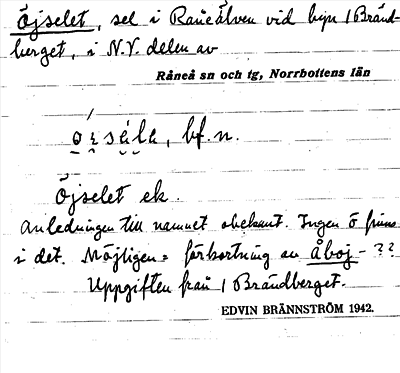 Öjselet, sel i Råneälven vid byn Bränd-
berget, i N.V. delen av
Råneå sn och tg, Norrbottens län
bf. n.
Öjselet ek.
Anledningen till namnet obekant. Ingen ö finns
i det. Möjligen = förkortning av Åboj- ??
Uppgiften från Brändberget.
EDVIN BRÄNNSTRÖM 1942.